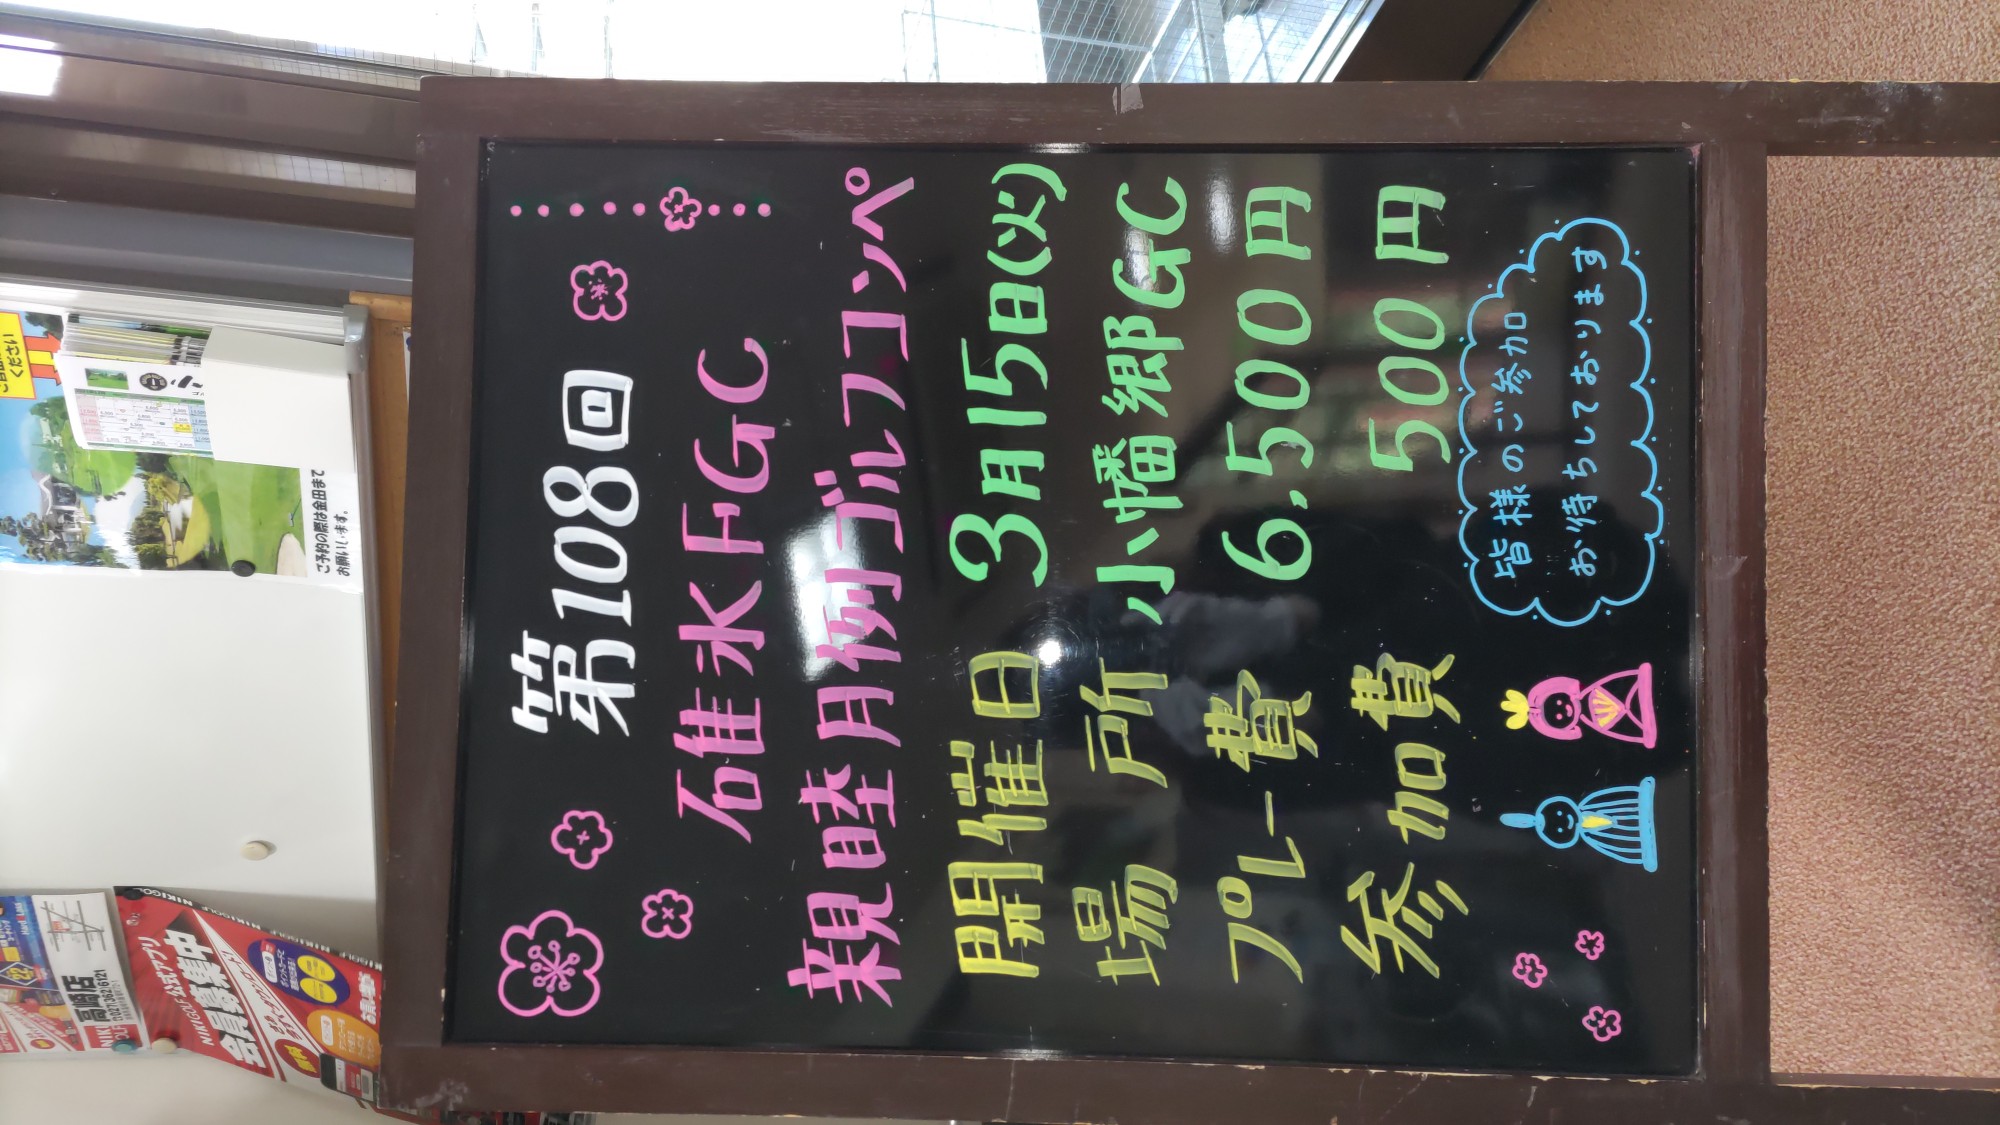 第108回
碓氷FGC
親睦月例ゴルフコンペ
開催日 3月15日(火)
場所 小幡郷GC
プレー費 6.500円
参加費 500円
皆様のご参加
お待ちしております
ください
ご予約の際は金田まで
お願いします。
高崎店
NIKIGOLF 公式アプリ
会員募集中